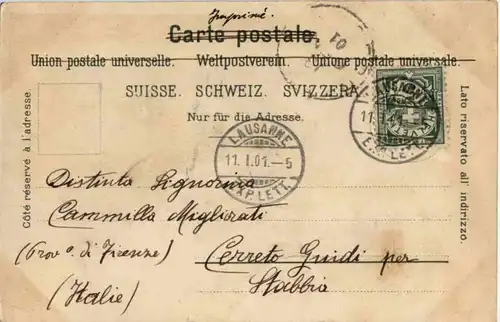 Imprimé.
Carte postale.
Union postale universelle. Weltpostverein. Unione postale universale.
SUISSE. SCHWEIZ. SVIZZERA.
Nur für die Adresse.
Côté réservé à l'adresse.
Lato riservato all' indirizzo.
LAUSANNE
11. I. 01. – 5
EXP. LETT.
LAUSANNE
11. – 5
EXP. LETT.
Distinta Signorina
Cammilla Migliorati
(Prov.a di Firenze) Cerreto Guidi per
(Italie) Stabbia